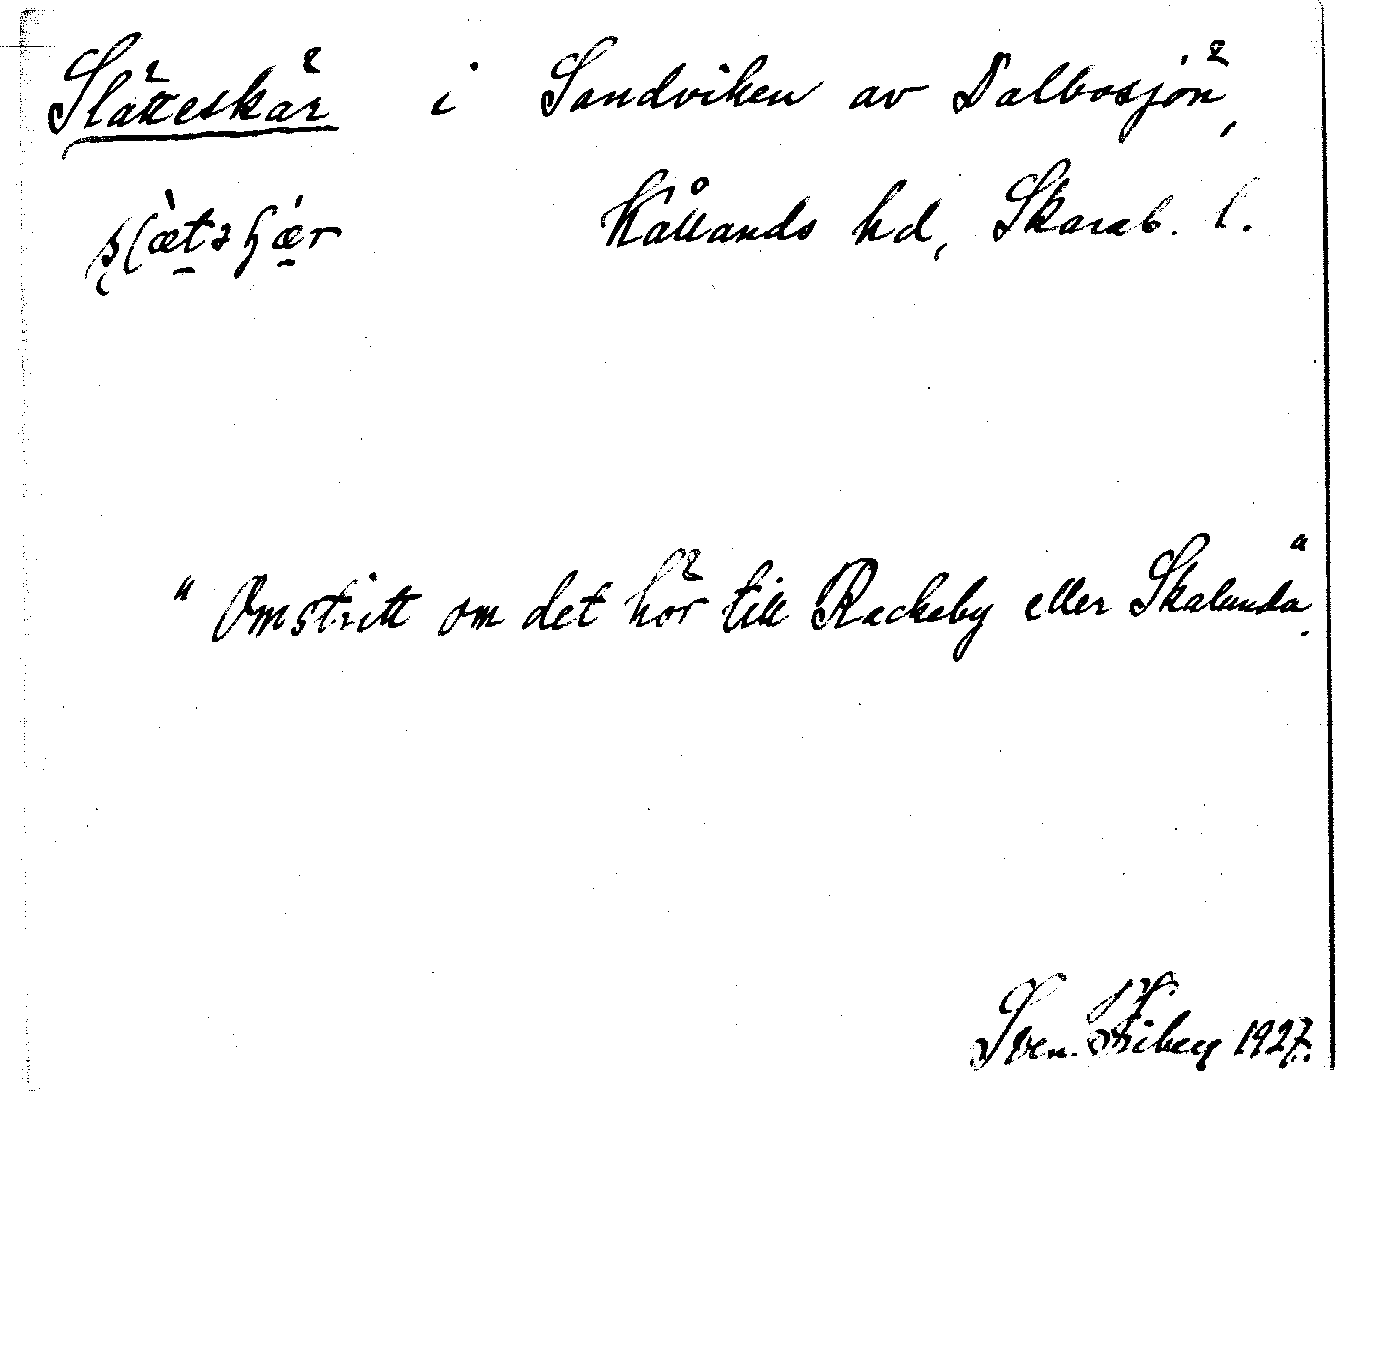 Slätteskär i Sandviken av Dalbosjön,
Kållands hd, Skarab. l.
"Omstritt om det hör till Rackeby eller Skalunda".
Sven 1927.